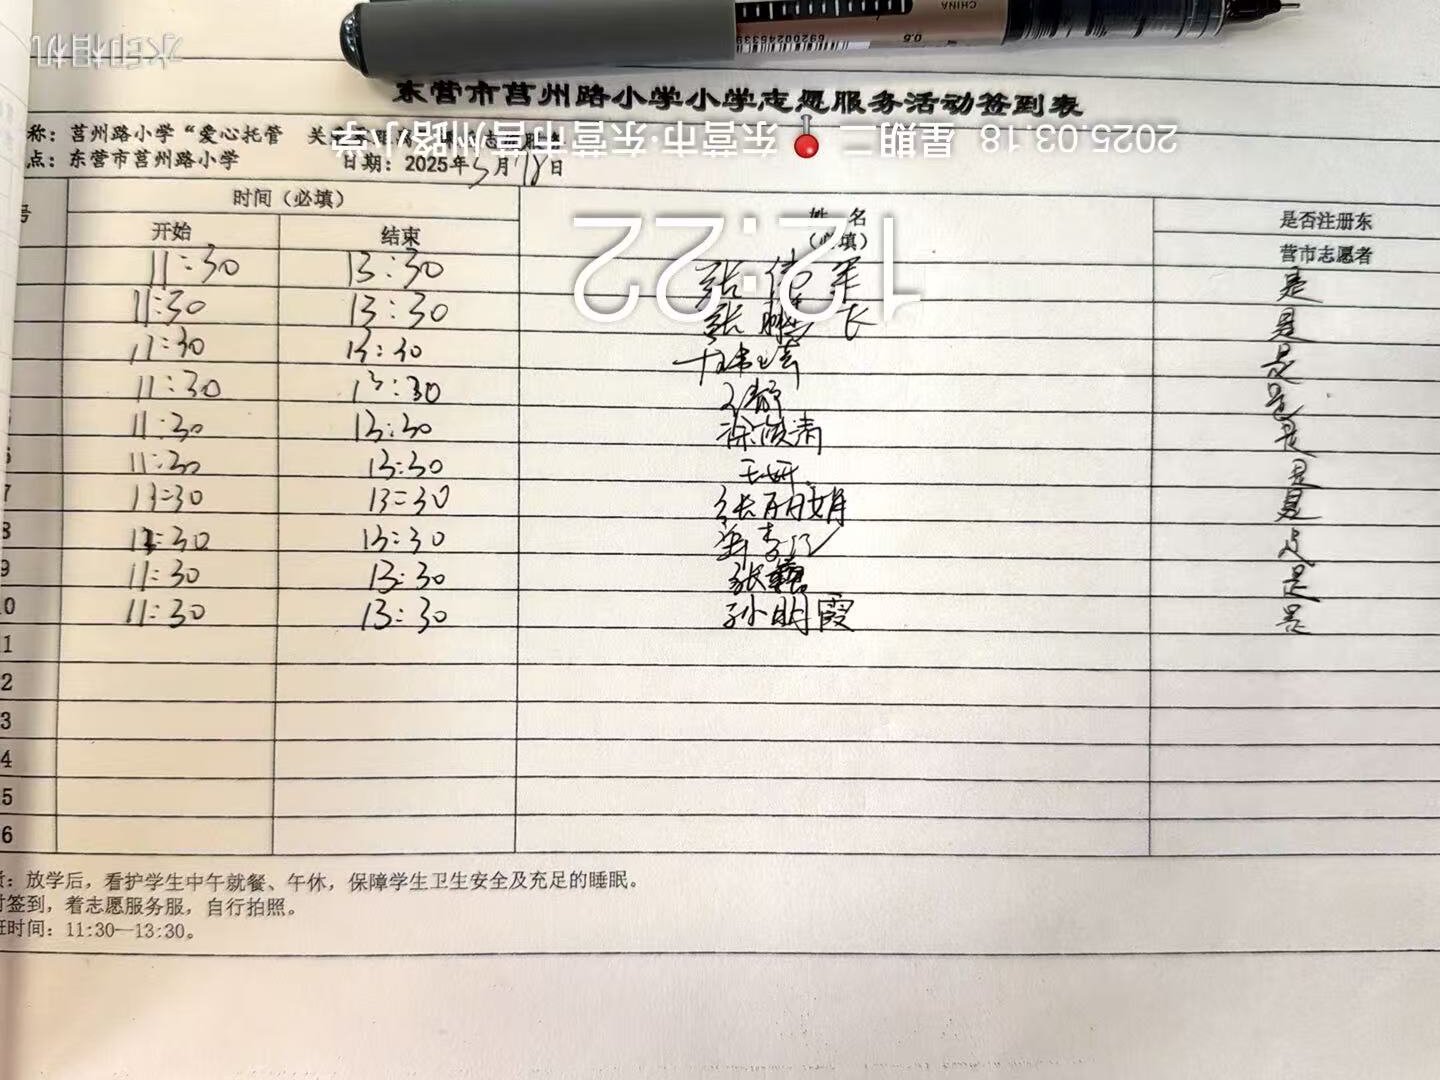 水印相机
CHINA
6920002453390
0.5
东营市莒州路小学小学志愿服务活动签到表
2025.03.18 星期二 东营市·东营市莒州路小学
称：莒州路小学“爱心托管 关
点：东营市莒州路小学 日期：2025年3月18日
12:22
号 时间（必填） 姓 名 （必填） 是否注册东营市志愿者
开始 结束
11:30 13:30 张 军 是
11:30 13:30 张 长 是
11:30 13:30 是
11:30 13:30 是
11:30 13:30 徐 清 是
6 11:30 13:30 王妍 是
7 13=30 13=30 张丽娟 是
8 11:30 13:30 是
9 11:30 13:30 张 是
10 11:30 13:30 孙明霞 是
11
12
13
14
15
16
：放学后，看护学生中午就餐、午休，保障学生卫生安全及充足的睡眠。
时签到，着志愿服务服，自行拍照。
班时间：11:30—13:30。